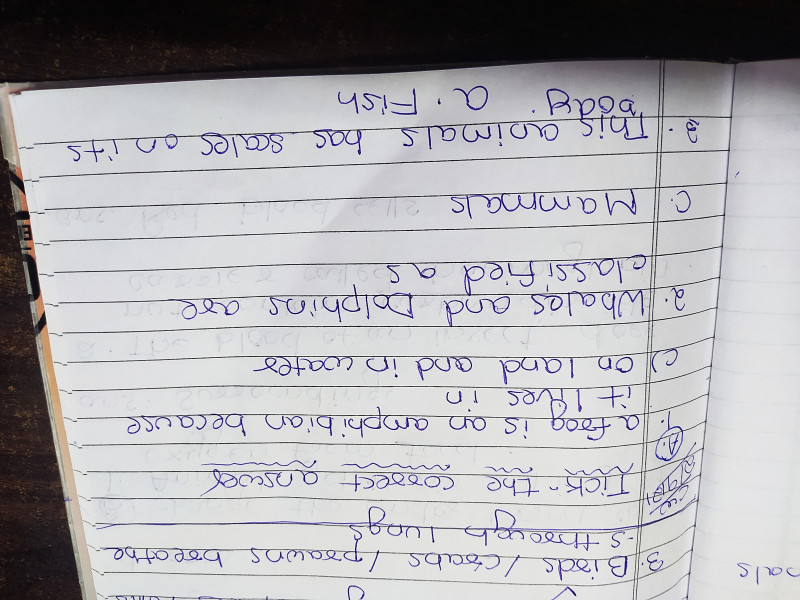 3. Birds / crabs / prawns breathe
-s through lungs
Tick the correct answer
A.
1. a frog is an amphibian because
it lives in
c) on land and in water
2. Whales and Dolphins are
classified as
C. Mammals
3. This animals has scales on its
body. a. Fish